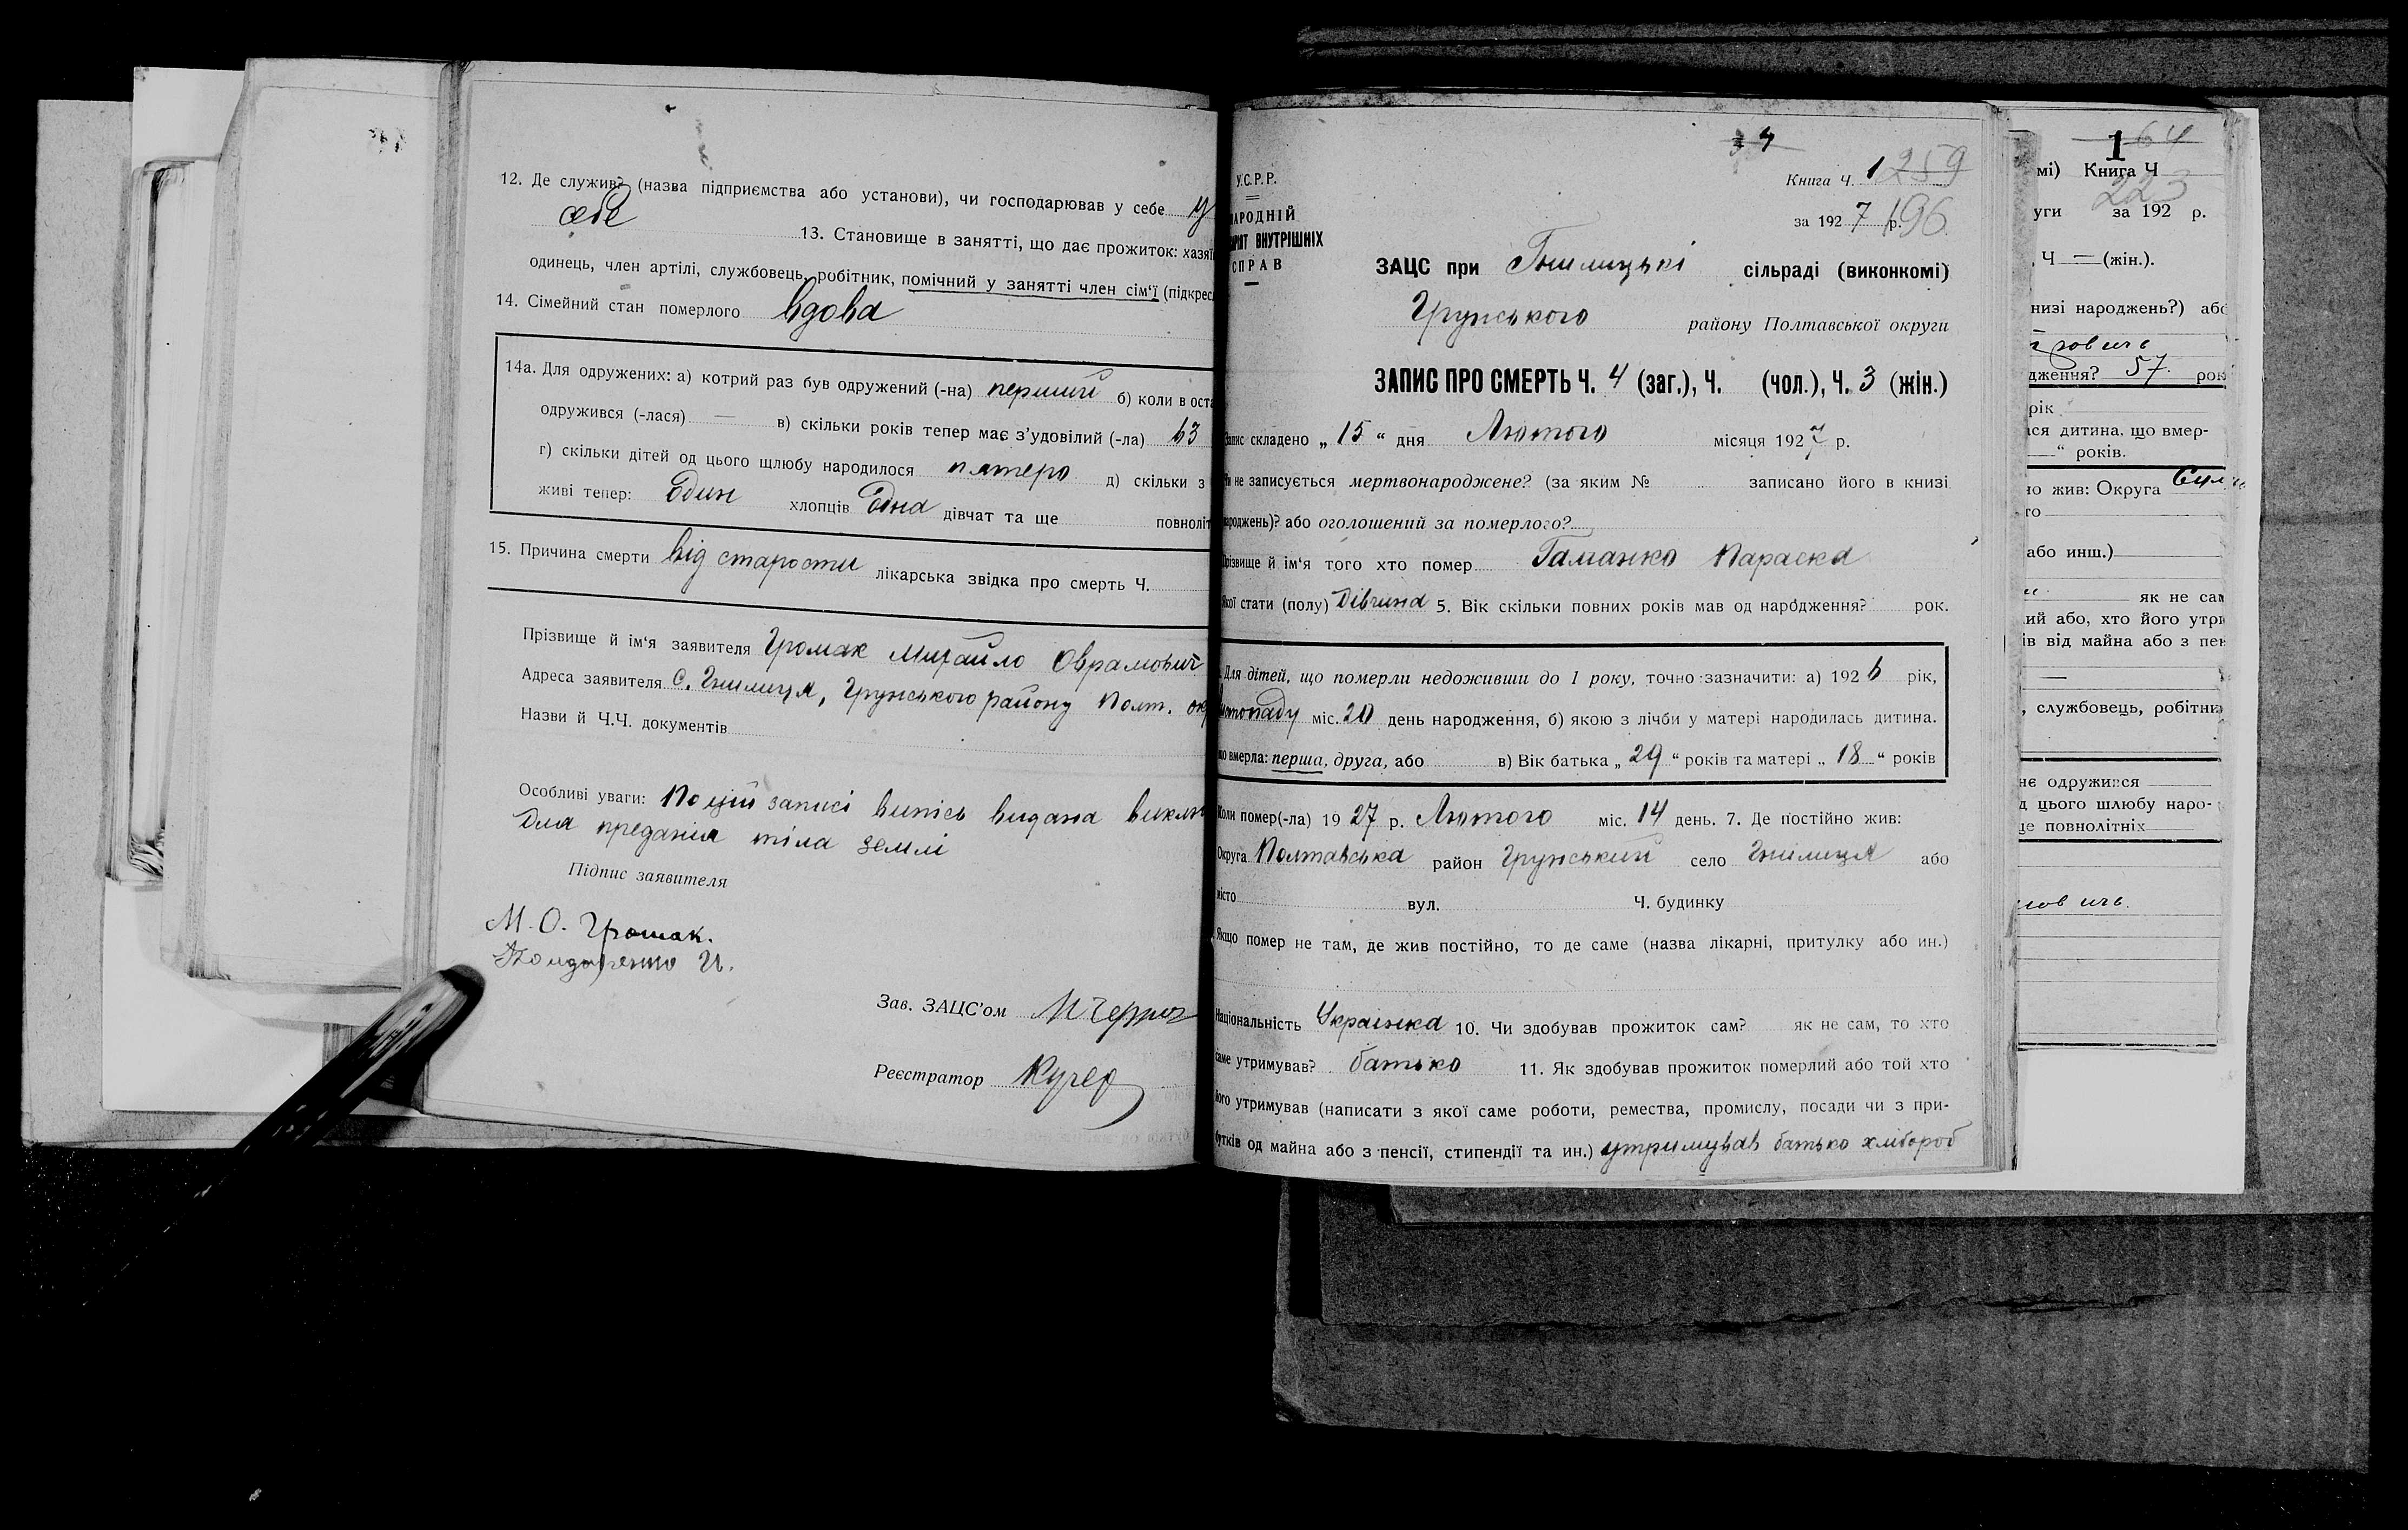 12. Де служив? (назва підприємства або установи), чи господарював у себе у
себе 13. Становище в занятті, що дає прожиток: хазяї
одинець, член артілі, службовець, робітник, помічний у занятті член сім'ї (підкрес
14. Сімейний стан померлого вдова
14а. Для одружених: а) котрий раз був одружений (-на) перший б) коли в оста
одружився (-лася) — в) скільки років тепер має з'удовілий (-ла) 63
г) скільки дітей од цього шлюбу народилося пятеро д) скільки з
живі тепер: Один хлопців Одна дівчат та ще повноліт
15. Причина смерти від старости лікарська звідка про смерть Ч.
Прізвище й ім'я заявителя Громак Михайло Оврамович
Адреса заявителя с. Гнилиця, Грунського району Полт. окр
Назви й Ч.Ч. документів
Особливі уваги: По цій записі випісь видана
Для предания тіла землі
Підпис заявителя
М. О. Громак.
Зав. ЗАЦС'ом
Реєстратор Кучер
34
У.С.Р.Р.
НАРОДНІЙ
ВНУТРІШНІХ
СПРАВ
Книга Ч. 1 259
за 1927 р. 196
ЗАЦС при Гнилицькі сільраді (виконкомі)
Грунського району Полтавської округи
ЗАПИС ПРО СМЕРТЬ Ч. 4 (заг.), Ч. (чол.), Ч. 3 (жін.)
Запис складено „ 15 " дня Лютого місяця 1927 р.
Чи не записується мертвонароджене? (за яким № записано його в книзі
народжень)? або оголошений за померлого?
Прізвище й ім'я того хто помер Гаманко Параска
Якої стати (полу) Дівчина 5. Вік скільки повних років мав од народження? рок.
Для дітей, що померли недоживши до 1 року, точно зазначити: а) 1926 рік,
Листопаду міс. 20 день народження, б) якою з лічби у матері народилась дитина.
що вмерла: перша, друга, або в) Вік батька „ 29 " років та матері „ 18 " років
Коли помер(-ла) 1927 р. Лютого міс. 14 день. 7. Де постійно жив:
Округа Полтавська район Грунський село Гнилиця або
місто вул. Ч. будинку
Якщо помер не там, де жив постійно, то де саме (назва лікарні, притулку або ин.)
Національність Українка 10. Чи здобував прожиток сам? як не сам, то хто
саме утримував? батько 11. Як здобував прожиток померлий або той хто
його утримував (написати з якої саме роботи, ремества, промислу, посади чи з при-
бутків од майна або з пенсії, стипендії та ин.) утримував батько хлібороб
1 64
мі) Книга Ч
223
уги за 192 р.
, Ч — (жін.).
низі народжень?) або
дження? 57. рок
рік
ася дитина, що вмер-
— " років.
о жив: Округа
го
або инш.)
як не сам
ий або, хто його утри
ів від майна або з пен
—
, службовець, робітник
нє одружився
д цього шлюбу наро-
ще повнолітніх